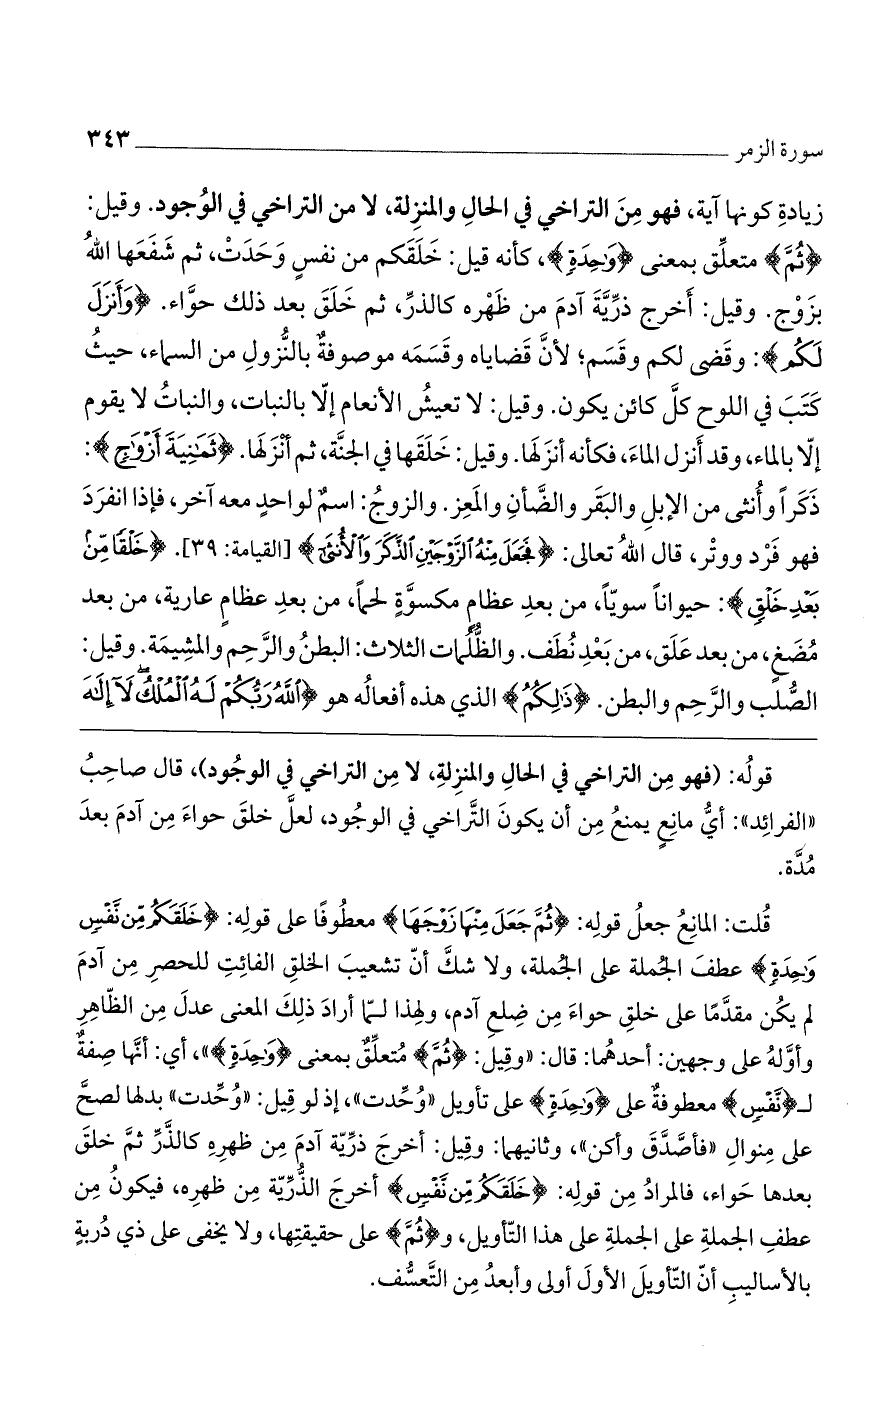 سورة الزمر ٣٤٣
زيادةِ كونها آية، فهو مِنَ التراخي في الحالِ والمنزِلة، لا من التراخي في الوُجود. وقيل:
﴿ثُمَّ﴾ متعلِّق بمعنى ﴿وَٰحِدَةٍ﴾، كأنه قيل: خَلَقَكم من نفسٍ وَحَدَتْ، ثم شَفَعَها اللهُ
بزَوْج. وقيل: أَخرج ذرِّيَّةَ آدمَ من ظَهْره كالذرِّ، ثم خَلَق بعد ذلك حوَّاء. ﴿وَأَنزَلَ
لَكُم﴾: وقَضى لكم وقَسَم؛ لأنَّ قضاياه وقَسَمَه موصوفةٌ بالنُّزولِ من السماء، حيثُ
كَتَبَ في اللوح كلَّ كائن يكون. وقيل: لا تعيشُ الأنعام إلّا بالنبات، والنباتُ لا يقوم
إلّا بالماء، وقد أَنزل الماءَ، فكأنه أنزلَها. وقيل: خَلَقَها في الجنَّة، ثم أنْزَلَها. ﴿ثَمَٰنِيَةَ أَزْوَٰجٍ﴾:
ذَكَراً وأُنثى من الإبلِ والبَقَر والضَّأنِ والمَعِز. والزوجُ: اسمٌ لواحدٍ معه آخر، فإذا انفرَدَ
فهو فَرْد ووتْر، قال اللهُ تعالى: ﴿فَجَعَلَ مِنْهُ ٱلزَّوْجَيْنِ ٱلذَّكَرَ وَٱلْأُنثَىٰٓ﴾ [القيامة: ٣٩]. ﴿خَلْقًا مِّنۢ
بَعْدِ خَلْقٍ﴾: حيواناً سويّاً، من بعدِ عظامٍ مكسوَّةٍ لحماً، من بعدِ عظامٍ عارية، من بعد
مُضَغٍ، من بعد عَلَق، من بَعْدِ نُطَف. والظُّلُمات الثلاث: البطنُ والرَّحِم والمشِيمَة. وقيل:
الصُّلب والرَّحِم والبطن. ﴿ذَٰلِكُمُ﴾ الذي هذه أفعالُه هو ﴿ٱللَّهُ رَبُّكُمْ لَهُ ٱلْمُلْكُ ۖ لَآ إِلَٰهَ
قولُه: (فهو مِن التراخي في الحالِ والمنزِلةِ، لا مِن التراخي في الوجُود)، قال صاحِبُ
«الفرائِد»: أيُّ مانِعٍ يمنعُ مِن أن يكونَ التَّراخي في الوجُود، لعلَّ خلقَ حواءَ مِن آدمَ بعدَ
مُدَّة.
قُلت: المانِعُ جعلُ قولِه: ﴿ثُمَّ جَعَلَ مِنْهَا زَوْجَهَا﴾ معطُوفًا على قولِه: ﴿خَلَقَكُم مِّن نَّفْسٍ
وَٰحِدَةٍ﴾ عطفَ الجُملة على الجُملة، ولا شكَّ أنّ تشعيبَ الخلقِ الفائِتِ للحصرِ مِن آدمَ
لم يكُن مقدَّمًا على خلقِ حواءَ مِن ضِلعِ آدم، ولهذا لـمّا أرادَ ذلِكَ المعنى عدلَ مِن الظّاهِرِ
وأوَّلهُ على وجهين: أحدهُما: قال: «وقِيل: ﴿ثُمَّ﴾ مُتعلِّقٌ بمعنى ﴿وَٰحِدَةٍ﴾»، أي: أنَّها صِفةٌ
لـ﴿نَّفْسٍ﴾ معطوفةٌ على ﴿وَٰحِدَةٍ﴾ على تأويل «وُحِّدت»، إذ لو قِيل: «وُحِّدت» بدلها لصحَّ
على مِنوالِ «فأصَّدَّقَ وأكن»، وثانيهما: وقِيل: أخرجَ ذرِّيّة آدمَ مِن ظهرِهِ كالذَّرِّ ثمَّ خلقَ
بعدها حَواء، فالمرادُ مِن قولِه: ﴿خَلَقَكُم مِّن نَّفْسٍ﴾ أخرجَ الذُّرِّيّة مِن ظهرِه، فيكونُ مِن
عطفِ الجملةِ على الجملة على هذا التّأويل، و﴿ثُمَّ﴾ على حقيقتِها، ولا يخفى على ذي دُربةٍ
بالأساليبِ أنّ التّأويلَ الأولَ أولى وأبعدُ مِن التَّعسُّف.